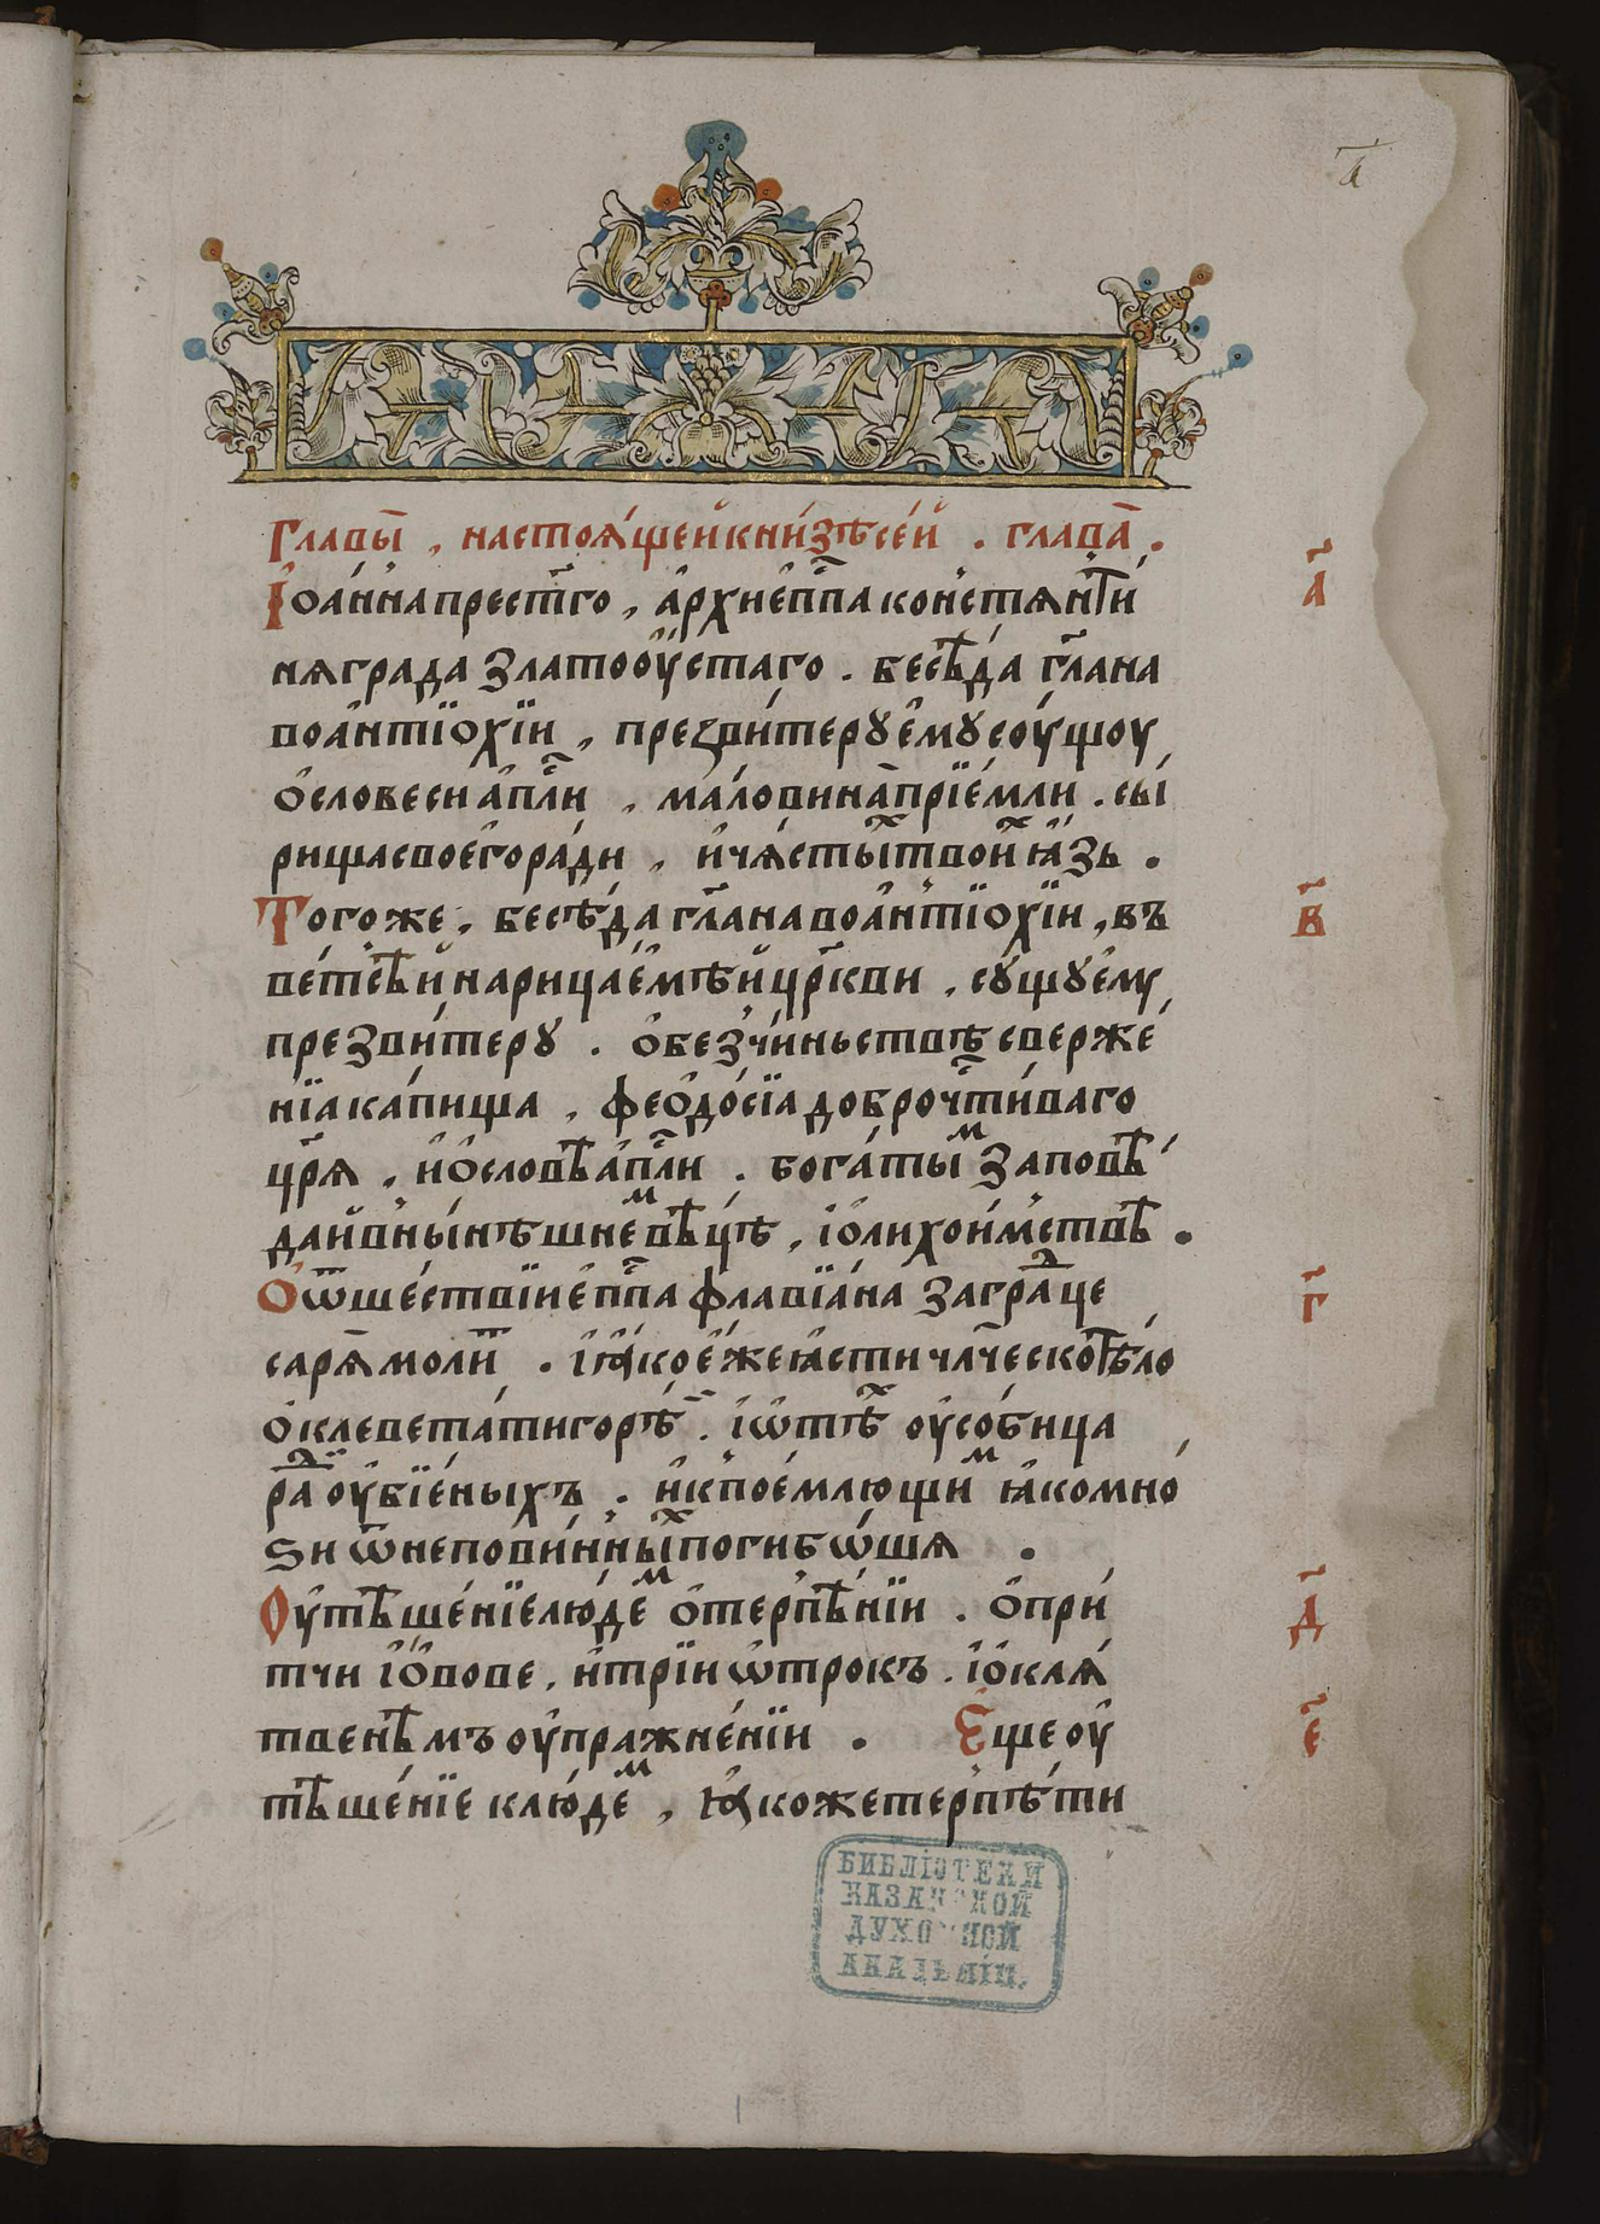 а҃
Главы̀, настоѧ́щей кни́зѣ се́й. глава̀.
Іоа́нна прест҃го, а҆рхиеп҃па констѧнти́
нѧграда златоо́устаго. бесѣ́да гл҃ана
во а҆нтїохїи, презви́теру е҆му соу́щоу
о҆ словеси а҆пл҃и, ма́ло вина̀ прїе́мли. сы́
рища своего̀ ра́ди, и҆ чѧ́стых твои́х ꙗ҆́зь.
Тогоже, бесѣ́да гл҃ана во а҆нтїохїи, въ
ве́тсѣй нарица́емѣй цр҃кви, су́щу е҆му
презви́теру. о҆ безчи́ньствѣ сверже́
нїа ка́пища, феодо́сїа доброчт҃и́ваго
цр҃ѧ, и҆ о҆ словѣ а҆пл҃и. бога́тым заповѣ́
дай в ны́нѣшнем вѣ́цѣ, і о҆ лихои́мствѣ.
О ѿше́ствїи е҆п҃па флавїа́на за град це
сарѧ̀ моли́т. і ꙗ҆́кое́же ꙗ҆сти чл҃ческо тѣ́ло
о҆клевета́ти горѣ̀. і ѡ҆ тѣх оусо́бица
рад оу҆бїе́ныхъ. и҆ к поє́млющим ꙗ҆ко мно́
ѕи ѿ непови́нных погибѡ́ша
Оу҆тѣше́нїе лю́дем о҆ терпѣ́нїи. о҆ при́
тчи і҆о́вове, и҆ трїи ѡ҆трокъ. і о҆ клѧ́
твенѣмъ оу҆пражне́нїи. Еще оу҆
тѣше́нїе к лю́дем, ꙗ҆́коже терпѣ́ти
а҃
в҃
г҃
д҃
е҃
БИБЛІОТЕКИ
КАЗАНСКОЙ
ДУХОВНОЙ
АКАДЕМІИ.